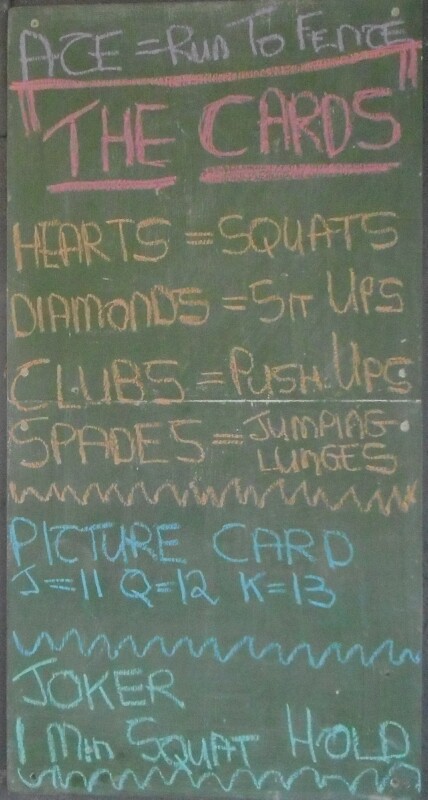 ACE = RUN TO FENCE
"THE CARDS"
HEARTS = SQUATS
DIAMONDS = SIT UPS
CLUBS = PUSH UPS
SPADES = JUMPING
LUNGES
PICTURE CARD
J=11 Q=12 K=13
JOKER
1 Min SQUAT HOLD